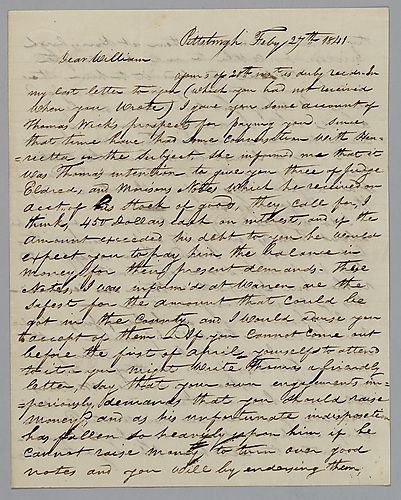 Pittsburgh Feby 27th 1841
Dear William
yours of 20th inst is duly recvd. In
my last letter to you (which you had not received
when you wrote) I gave you some account of
Thomas Wick's prospects for paying you, since
that time have had some conversation with Hen=
=rietta on the subject She informed me that it
was Thomas intention to give you three of Judge
Eldred, and Morisons Notes which he received on
acct. of his stock of goods, they call for, I
think, 450 Dollars each on interest, and if the
amount exceeded his debt to you he would
expect you to pay him the balance in
money for their present demands. These
Notes, I was inform'd at Warren are the
safest for the amount that could be
got in the County and I would advise you
to accept of them. If you cannot come out
before the first of April yourself to attend
to it, you might write Thomas a friendly
letter, say that your own engagements im=
=periously demands that you should raise
money, and as his unfortunate indisposition
has fallen so heavily upon him if he
cannot raise money to turn over good
notes and you will by endorsing them,